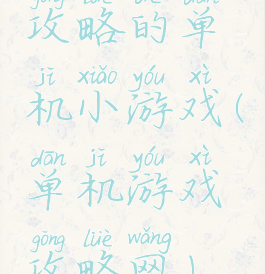 gōng lüè de dān
攻略的单
jī xiǎo yóu xì
机小游戏(
dān jī yóu xì
单机游戏
gōng lüè wǎng
攻略网)